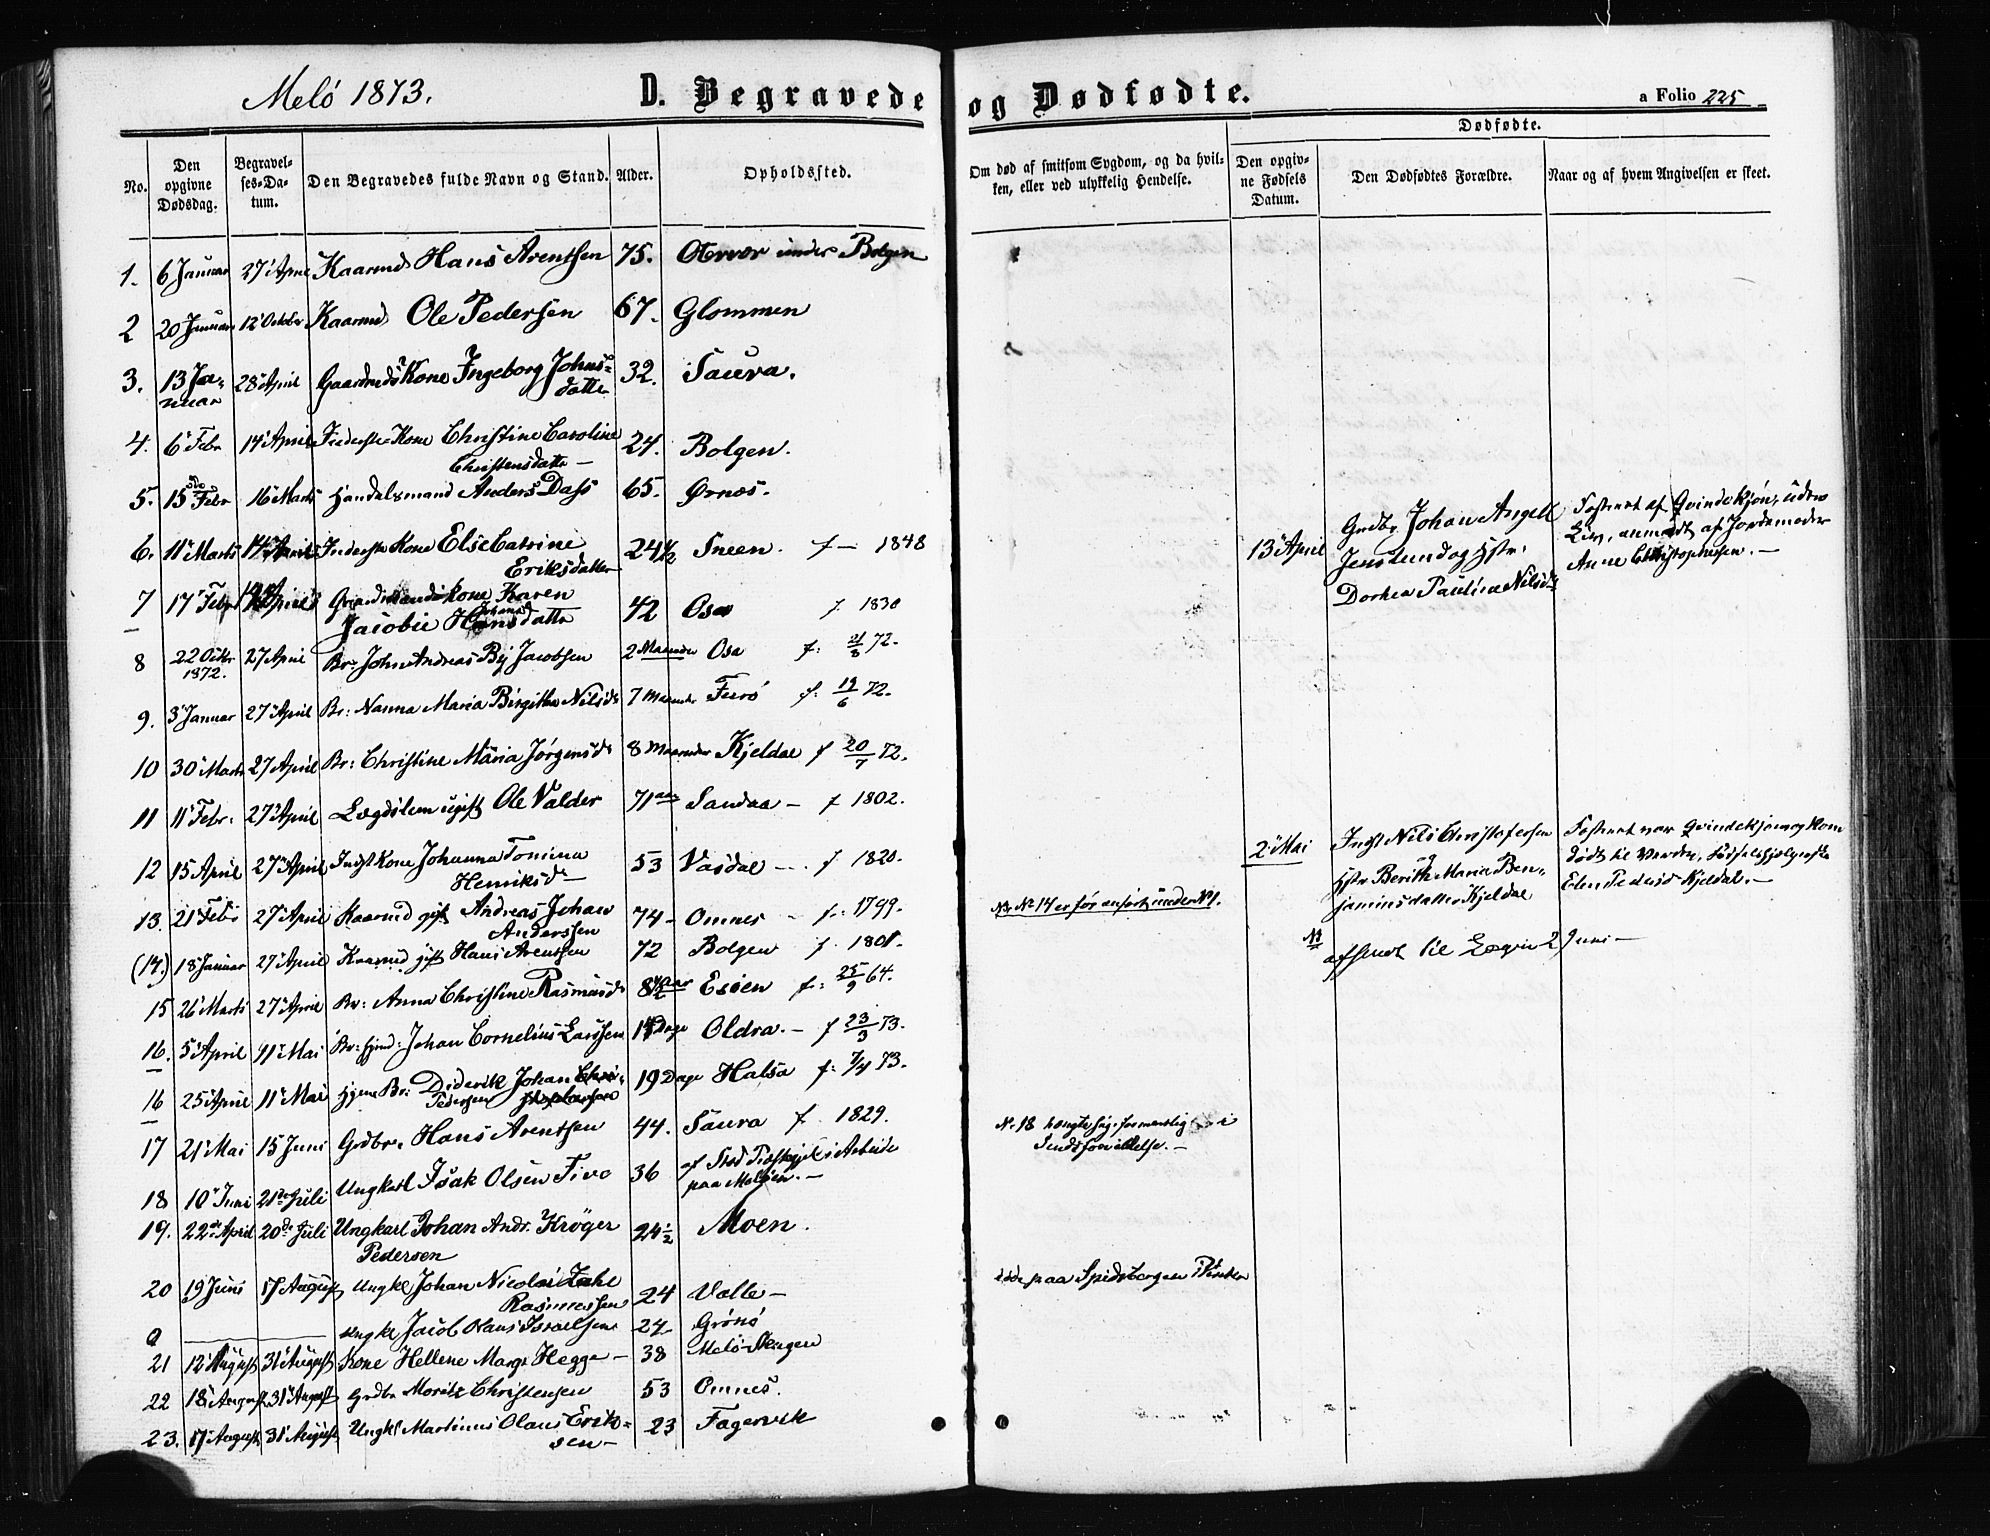 Melö 1873.
D. Begravede og Dødfødte.
a Folio 225
No.
Den opgivne Dødsdag.
Begravelses-Datum.
Den Begravedes fulde Navn og Stand.
Alder.
Opholdssted.
Om død af smitsom Sygdom, og da hvilken, eller ved ulykkelig Hendelse.
Dødfødte.
Den opgivne Fødsels Datum.
Den Dødfødtes Forældre.
Naar og af hvem Angivelsen er skeet.
1. 6 Januar 27 April Kaarmd Hans Arentsen 75. Otervær under Bolgen
2 20 Januar 12 October Kaarmd Ole Pedersen 67. Glommen
3. 13 Januar 28 April Gaardmds Kone Ingeborg Johnsdatte 32. Saura.
4. 6 Febr 14 April Inderste Kone Christine Caroline Christensdatte 24. Bolgen.
5. 15 Febr 16 Marts Handelsmand Anders Dass 65. Ørnæs.
6. 11 Marts 14 April Inderste Kone Else Catrine Eriksdatter 24 1/2 Sneen. f 1848
7 17 Febr April Gaardmandskone Karen Jacobie datte 42 Osa f 1830
8 22 Octbr 1872. 27 April Br. John Andreas Bij Jacobsen 2 Maaneder Osa f: 21/8 72.
9. 3 Januar 27 April Br: Nanna Maria Birgitha Nilsd 7 Maaneder Furö f. 19/6 72.
10 30 Marts 27 April Br: Christine Maria Jørgensd 8 Maaneder Kjeldal f 20/7 72.
11 11 Febr. 27 April Lægdslem ugift Ole Valder 71 aar Sandaa - f 1802.
12 15 April 27 April Indst Kone Johanna Tomina Henriksd 53 Vasdal - f 1820.
13. 21 Febr 27 April Kaarmd gift Andreas Johan Anderssen 74 - Omnes - f. 1799.
(14.) 18 Januar 27 April Kaarmd gift Hans Arentsen 72 Bolgen f. 1801.
15 26 Marts 27 April Br: Anna Christine Rasmusd 8 1/2 aar Esöen f: 25/9 64.
16. 5 April 11 Mai Br: hjmd: Johan Cornelius Larssen 14 Dage Oldra. - f 23/3 73.
16 25 April 11 Mai Hjemd Br: Diderik Johan Pedersen 19 Dage Halsa f: 7/4 73.
17 21 Mai 15 Juni Grdbr. Hans Arentsen 44. Saura f. 1829.
18 10 Juni 21 Juli Ungkarl Isak Olsen Tivo 36 af Stod Præstegjeld i Arbeide paa Melöen. -
19. 22 April 20de Juli Ungkarl Johan Andr. Krøger Pedersen 24 1/2 Moen.
20 19 Juni 17 August Ungkl Johan Nicolai Zahl Rasmussen 24 Valle -
a Ungkl Jacob Olaus Israelsen 24 Grönö
21 12 August 31 August Kone Hellene Margr Hegge - 38 Melö
22 18 August 31 August Grdbr Moritz Christensen 53 Omnes.
23. 17 August 31 August Ungkl Martinus Olaus Eriksen - 23 Fagervik
No 14 er før anført under N 1.
N. 18 hængte sig formentlig i
Sindsforvildelse. -
døde paa Spidsbergen i Vinter
13 April
Grdbr Johan Angell
Jenslund og Hstr.
Dorhea Paulina Nilsd
Fosteret af Qvindekjøn, uden
Liv, anmeldt af Jordemoder
Anne Christophersen. -
2 Mai
Indst Nils Christofersen
Hstr Berith Maria Ben-
jaminsdatter Kjeldal
Fosteret var Qvindekjøn og kom
dødt til Verden, Fødselshjelperske
Elen Pedersd Kjeldal. -
N
afsendt til Lægen 2 Juni -